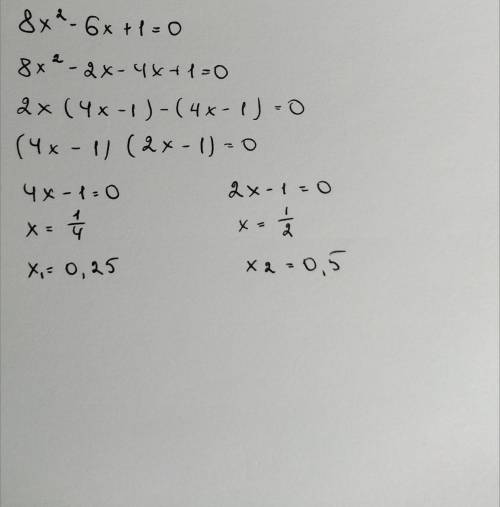 8x² - 6x + 1 = 0
8x² - 2x - 4x + 1 = 0
2x (4x - 1) - (4x - 1) = 0
(4x - 1) (2x - 1) = 0
4x - 1 = 0 2x - 1 = 0
x = 1/4 x = 1/2
x₁ = 0,25 x2 = 0,5